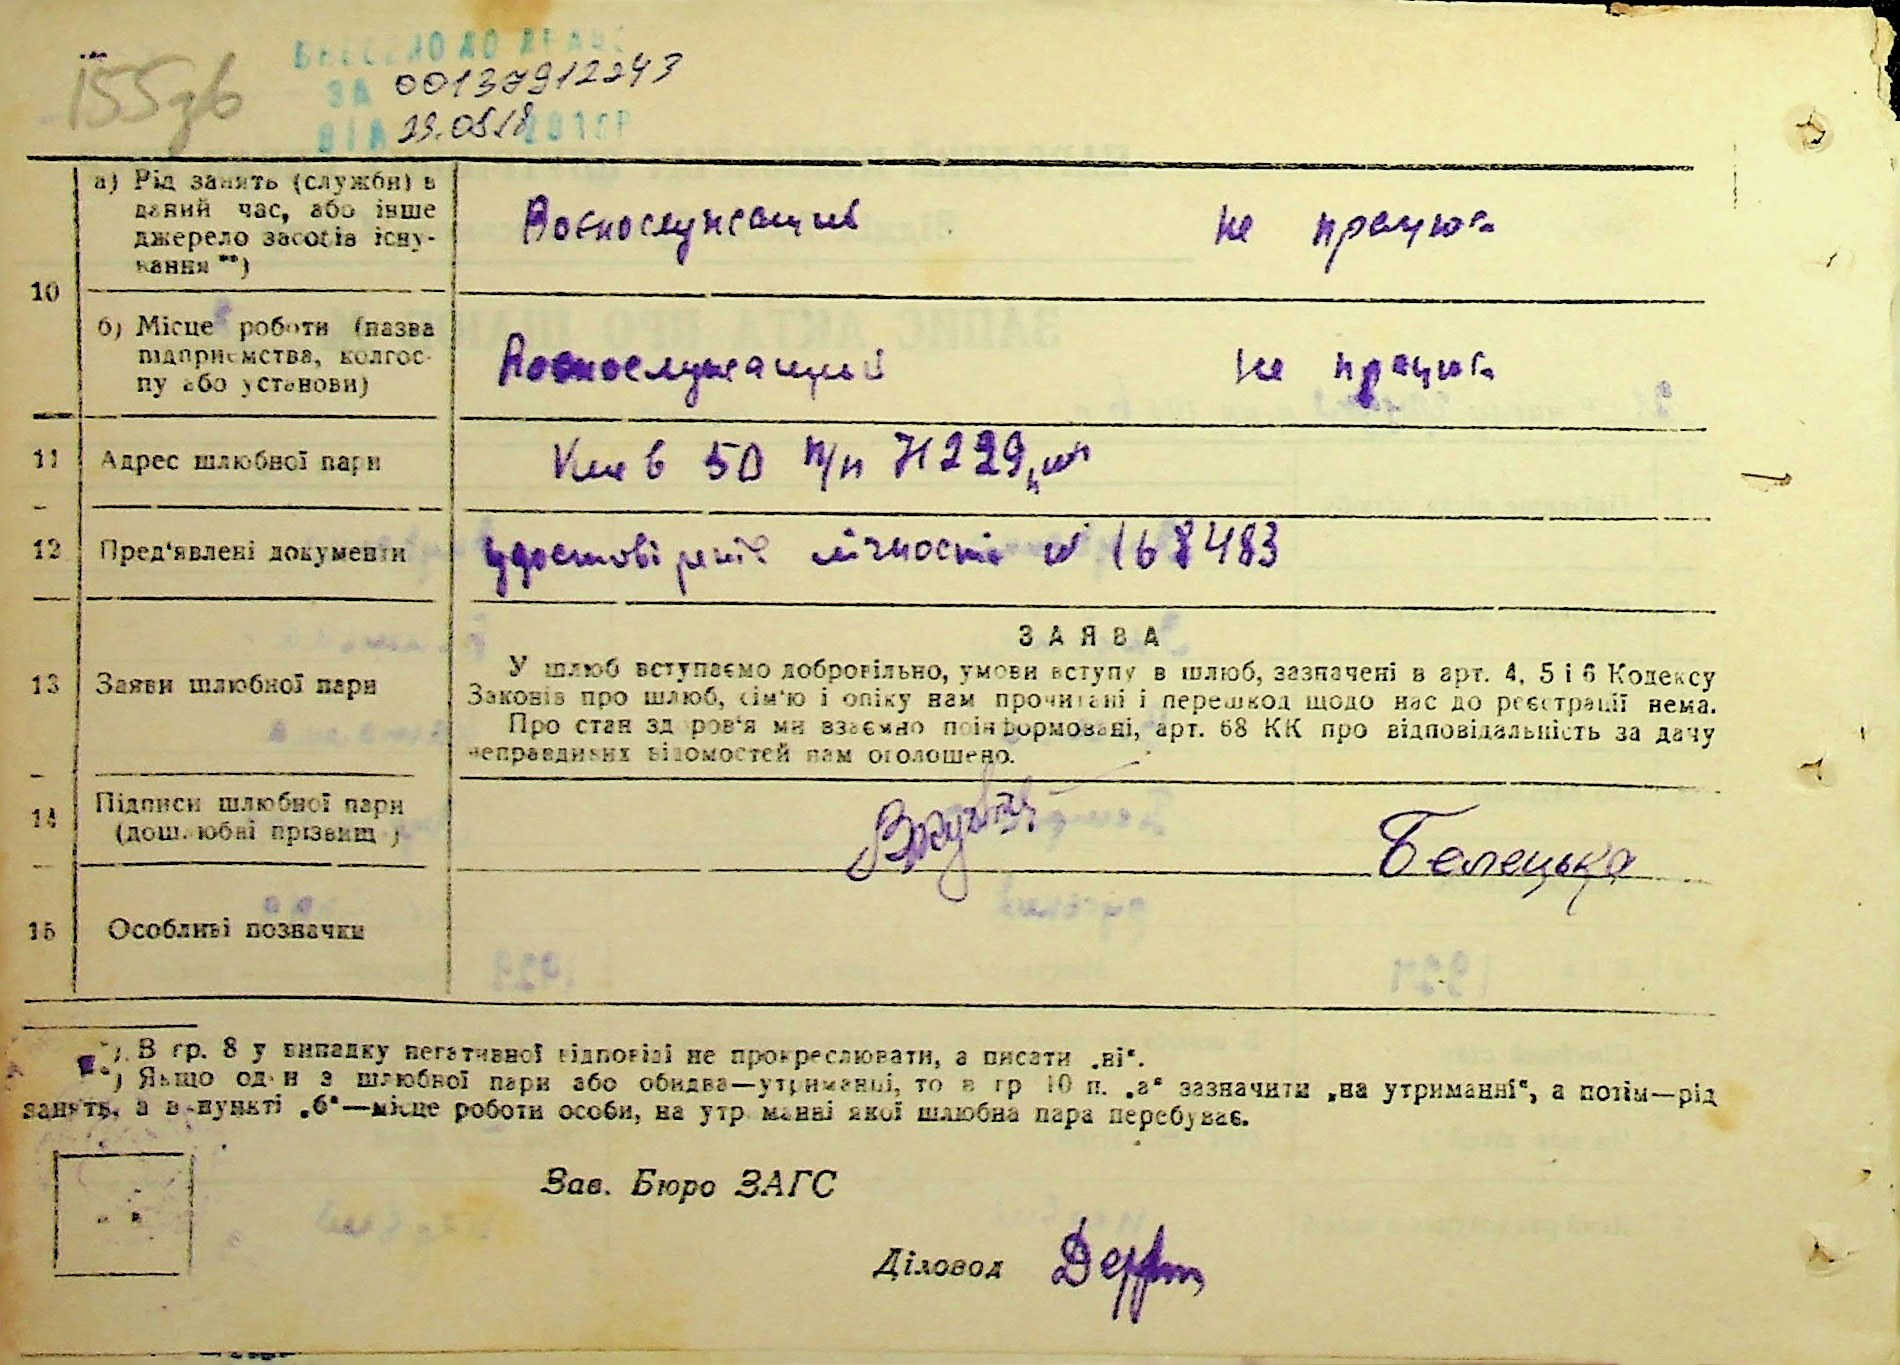 155зв
00137912243
29.05.18
10
а) Рід занять (служби) в
даний час, або інше
джерело засобів існу-
вання **)
Воєнослужащий
не працює
б) Місце роботи (назва
підприємства, колгос-
пу або установи)
Воєнослужащий
не працює
11
Адрес шлюбної пари
Киев 50 п/п 71229 „ш"
12
Пред'явлені документи
удостовіреніє лічності № 168483
ЗАЯВА
13
Заяви шлюбної пари
У шлюб вступаємо добровільно, умови вступу в шлюб, зазначені в арт. 4, 5 і 6 Кодексу
Законів про шлюб, сім'ю і опіку нам прочитані і перешкод щодо нас до реєстрації нема.
Про стан здоров'я ми взаємно поінформовані, арт. 68 КК про відповідальність за дачу
неправдивих відомостей нам оголошено.
14
Підписи шлюбної пари
(дошлюбні прізвищ )
Белецька
15
Особливі позначки
*) В гр. 8 у випадку негативної відповіді не прокреслювати, а писати „ні".
**) Якщо один з шлюбної пари або обидва—утриманці, то в гр 10 п. „а" зазначити „на утриманні", а потім—рід
занять, а в пункті „б"—місце роботи особи, на утриманні якої шлюбна пара перебуває.
Зав. Бюро ЗАГС
Діловод